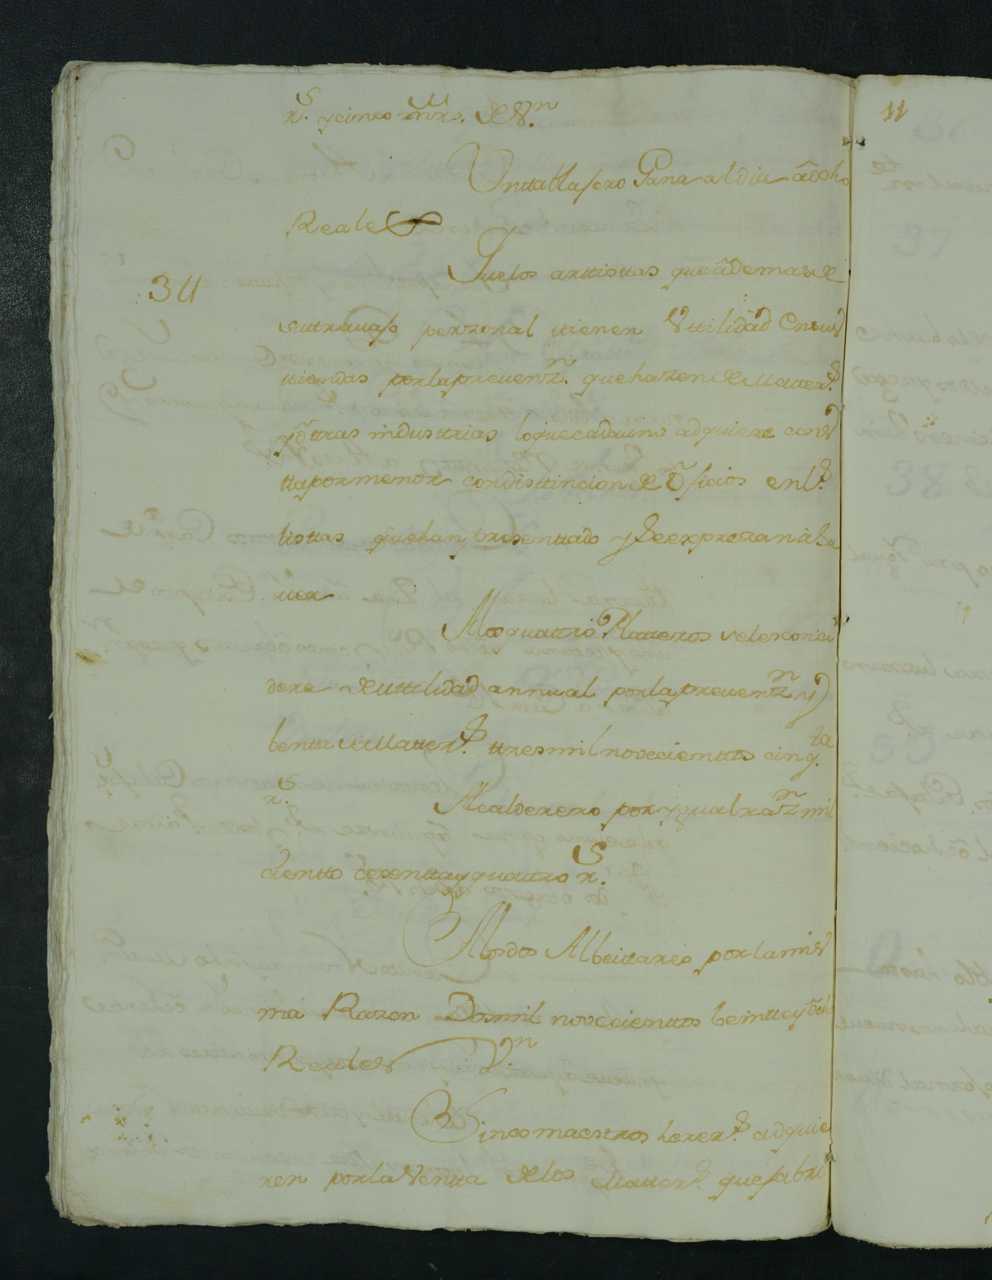 rs. y cinco mrs. de Vn.
Un tallista Gana al dia ôcho
Reales
34
Que los artistas que âdemas de
su travajo perzonal tienen Vtilidad en sus
tiendas por la prevenzn. que hazen de Mater.s
y ôtras industrias lo que cada uno adquiere cons
ta por menor con distincion de ôficios en ls.
listas que han presentado y se expresan â sa
ver
A los quatro Plateros se les consi
dera de utilidad annual por la prevenzn y
benta de Mater.s tres mil novecientos cinq.ta
rs.
Al calderero por ygual razn mil
ciento sesenta y quatro rs.
A los dos Albeitares por la mis
ma Razon Dos mil novecientos beinte y ôcho
Reales Vn.
Cinco maestros herer.s adquie
ren por la Venta de los Mater.s que fabri